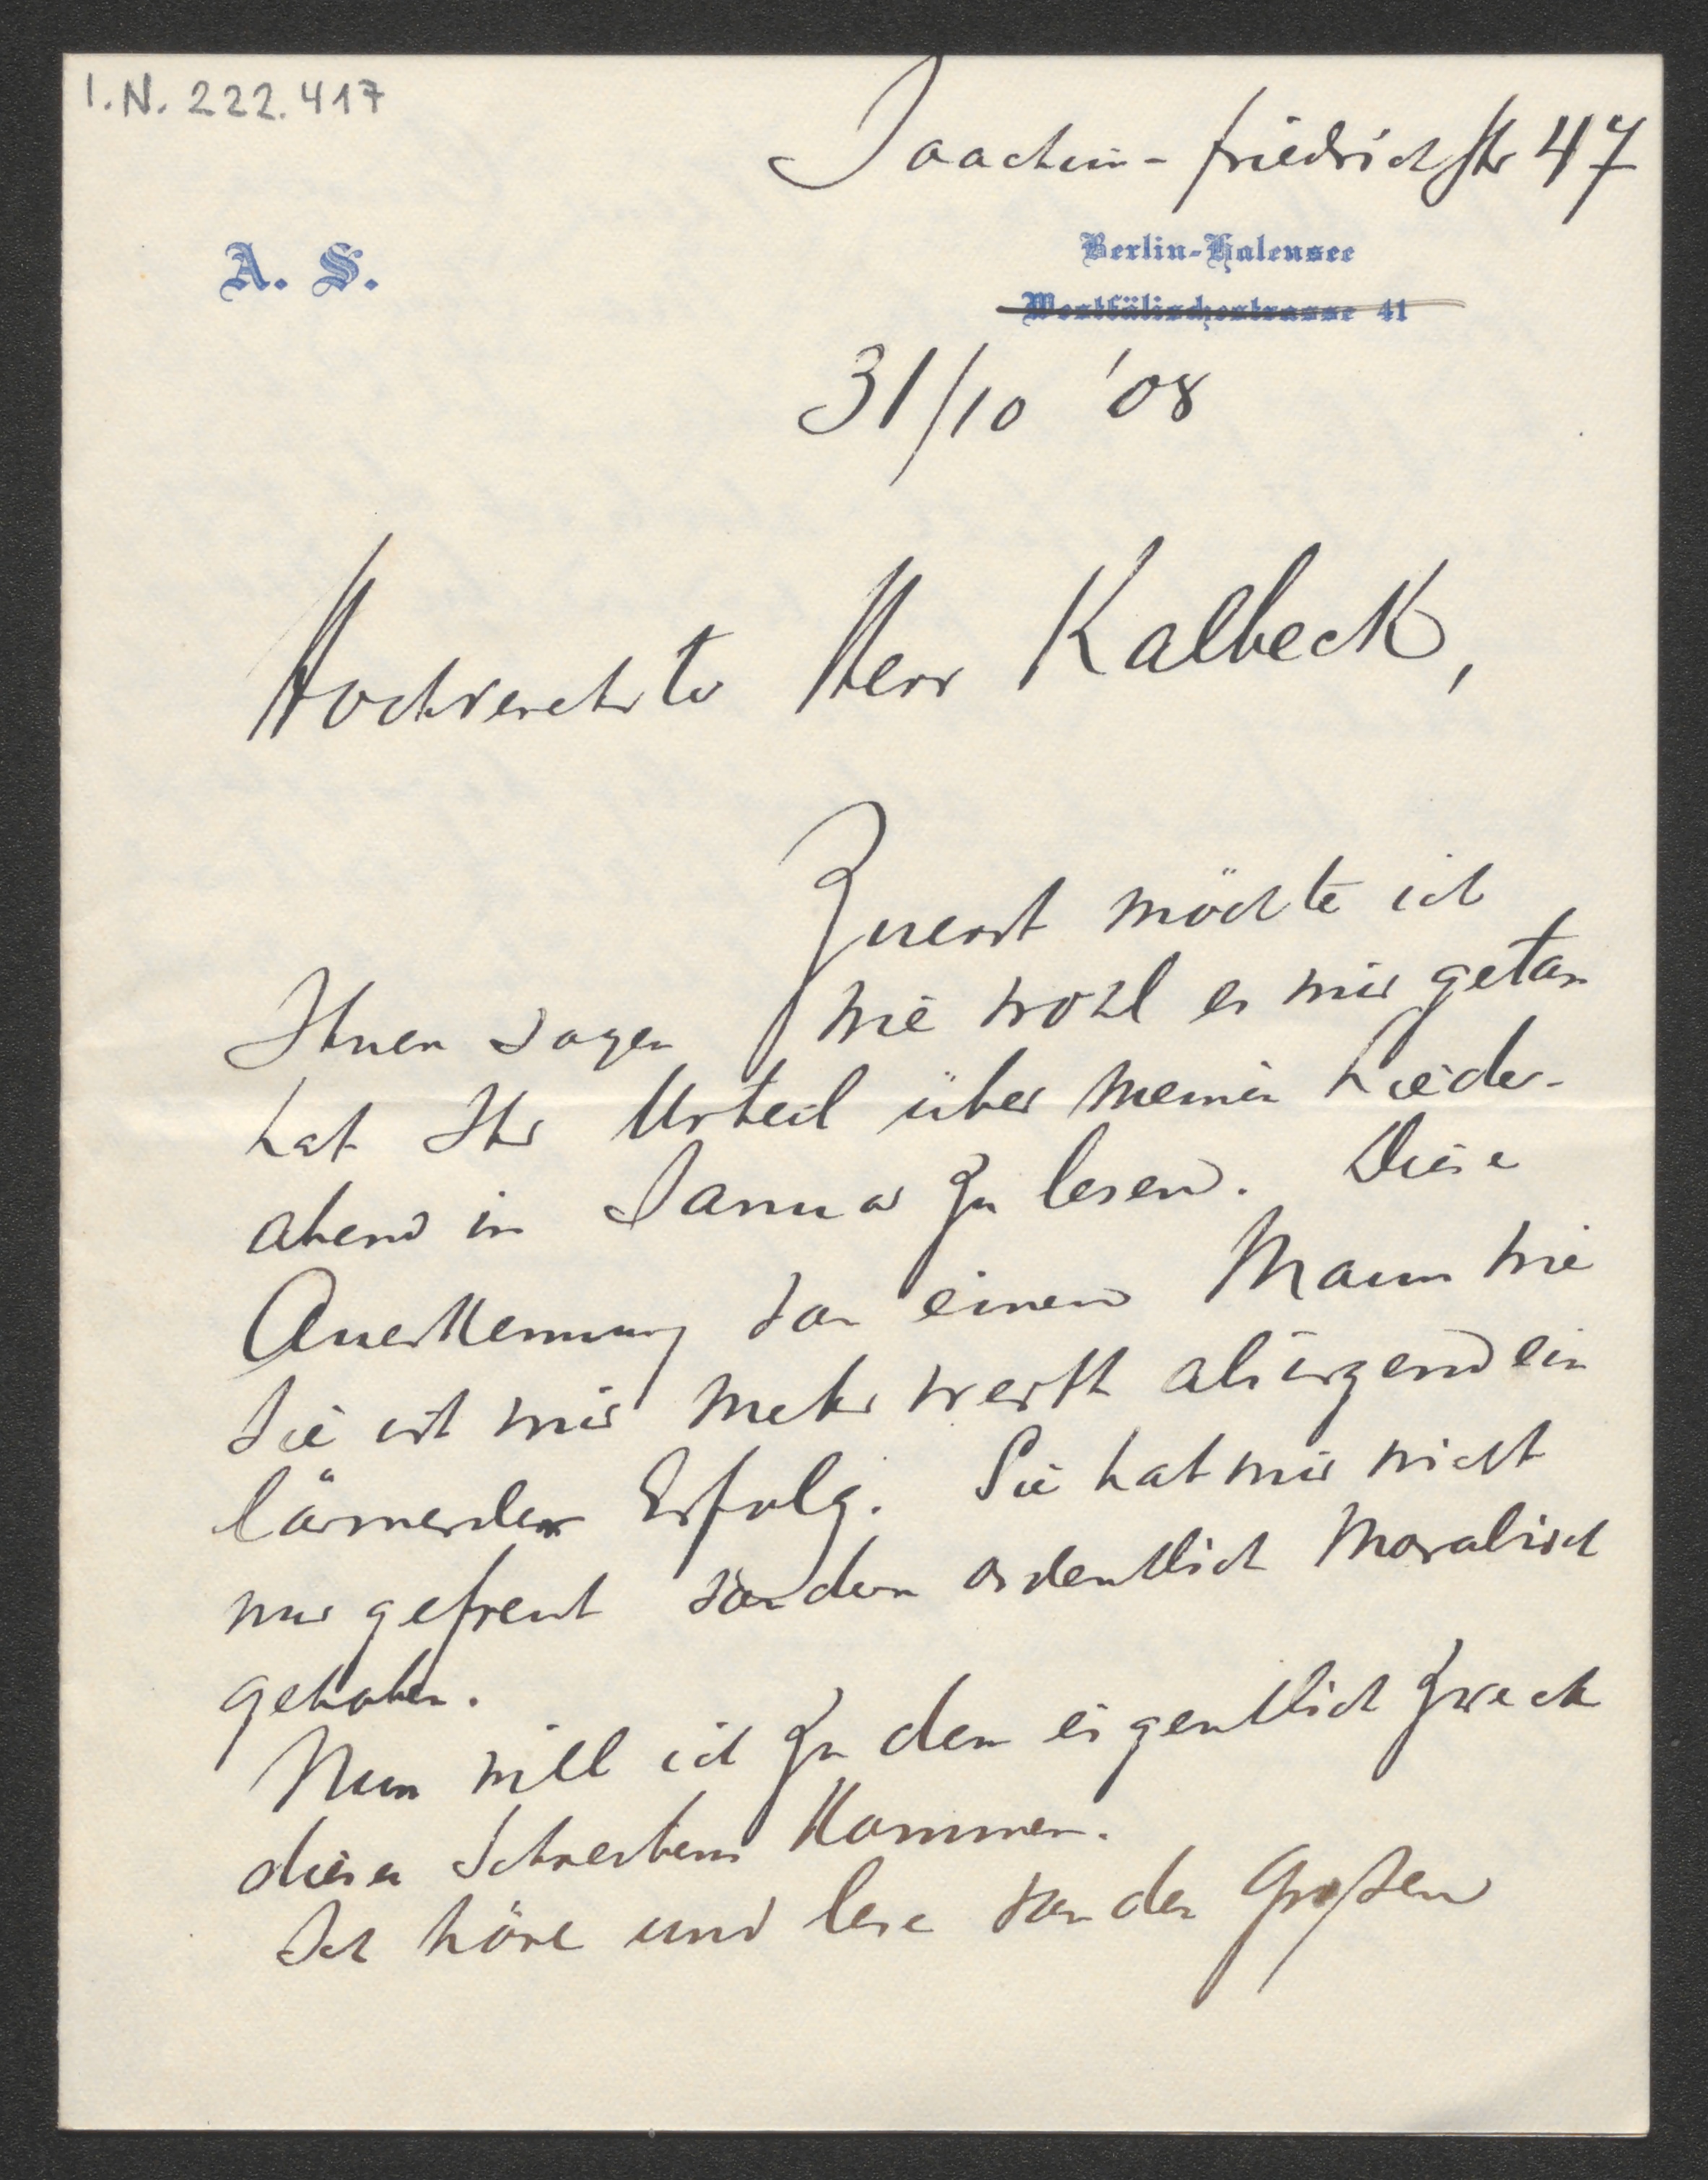 I.N. 222.417
Joachim-Friedrichstr 47
A. S.
Berlin-Halensee
Westfälischestrasse 41
31/10 '08
Hochverehrter Herr Kalbeck,
Zuerst möchte ich
Ihnen sagen wie wohl es mir getan
hat Ihr Urteil über meinen Lieder-
abend in Januar zu lesen. Diese
Anerkennung von einem Mann wie
Sie ist mir mehr werth als irgend ein
lärmender Erfolg. Sie hat mir nicht
nur gefreut sondern ordentlich moralisch
gehoben.
Nun will ich zu dem eigentlich Zweck
dieses Schreibens kommen.
Ich höre und lese von der Grossen